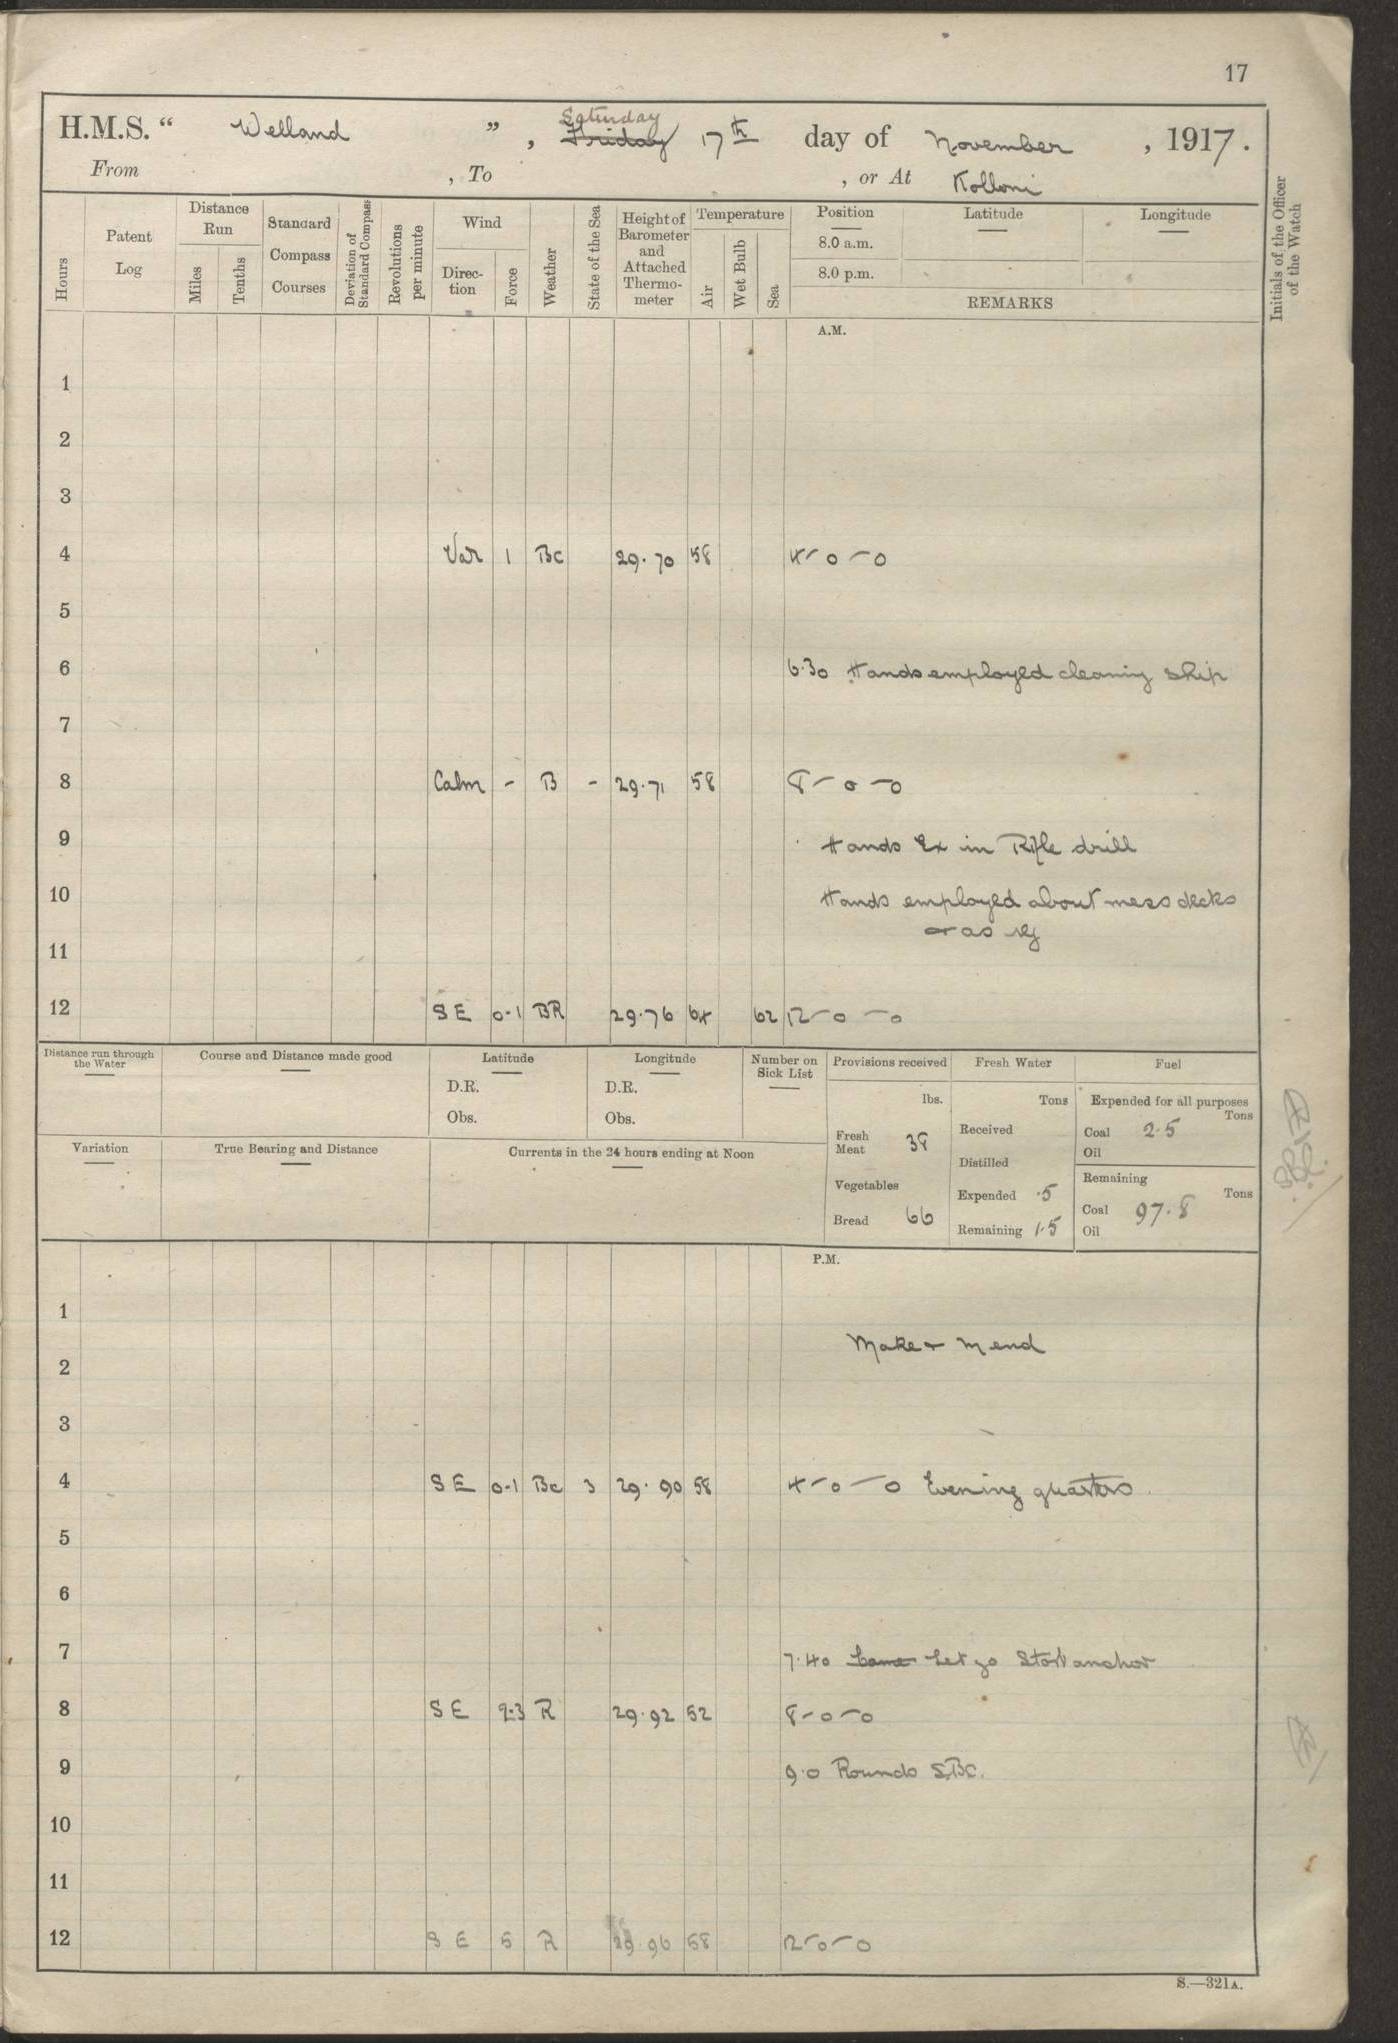 17
H.M.S. “ Welland ” , Saturday Friday 17th day of November , 1917.
From , To , or At Kolloni
Hours
Patent Log
Distance Run
Miles
Tenths
Standard Compass Courses
Deviation of Standard Compass
Revolutions per minute
Wind
Direc-tion
Force
Weather
State of the Sea
Height of Barometer and Attached Thermo-meter
Temperature
Air
Wet Bulb
Sea
Position
8.0 a.m.
8.0 p.m.
Latitude
Longitude
REMARKS
Initials of the Officer of the Watch
A.M.
1
2
3
4 Var 1 Bc 29.70 58 4 – 0 – 0
5
6 6.30 Hands employed cleaning ship
7
8 Calm - B - 29.71 58 8 – 0 – 0
9 Hands Ex in Rifle drill
10 Hands employed about mess decks
or as req
11
12 SE 0-1 BR 29.76 64 62 12 – 0 – 0
Distance run through the Water
Course and Distance made good
Latitude
D.R.
Obs.
Longitude
D.R.
Obs.
Number on Sick List
Provisions received
lbs.
Fresh Meat 38
Vegetables
Bread 66
Fresh Water
Tons
Received
Distilled
Expended .5
Remaining 1.5
Fuel
Expended for all purposes
Tons
Coal 2.5
Oil
Remaining
Tons
Coal 97.8
Oil
Variation
True Bearing and Distance
Currents in the 24 hours ending at Noon
P.M.
1
Make & Mend
2
3
4 SE 0-1 Bc 3 29.90 58 4 – 0 – 0 Evening quarters
5
6
7 7.40 Came Let go Starb anchor
8 SE 2.3 R 29.92 52 8 – 0 – 0
9 9.0 Rounds S.B.C.
10
11
12 SE 5 R 29.96 58 12 – 0 – 0
S.—321A.